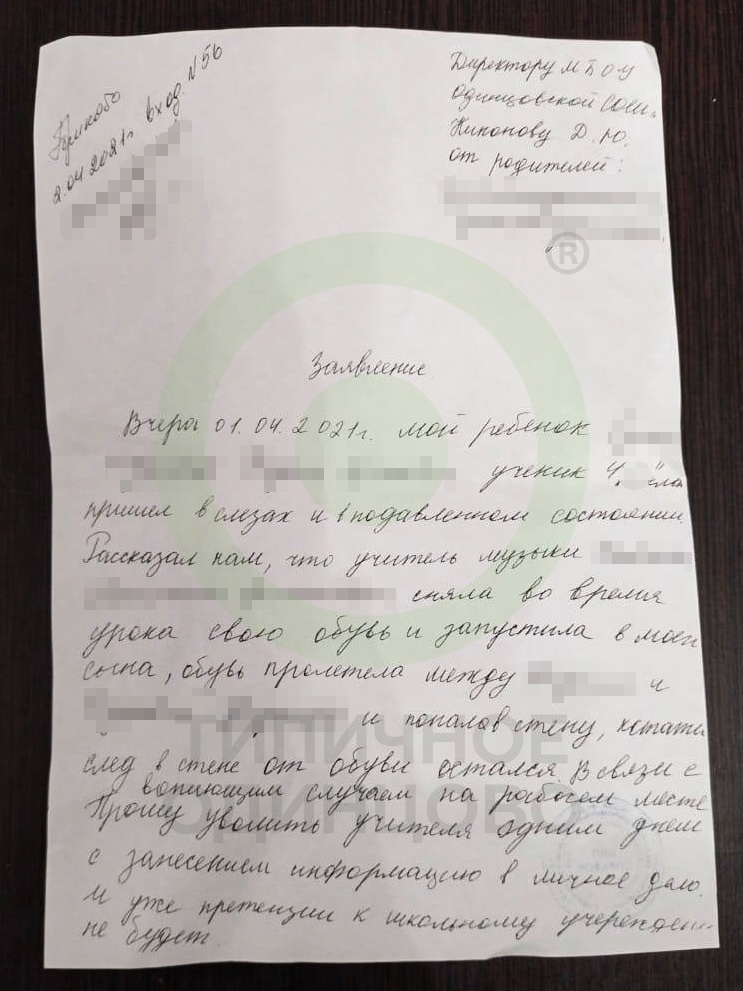 Принято
2.04.2021г. вход. N 56
Директору МБОУ
Одинцовской СОШ
Никонову Д.Ю.
от родителей:
®
Заявление
Вчера 01.04.2021г. мой ребенок
ученик 4
пришел в слезах и в подавленном состоянии.
Рассказал нам, что учитель музыки
сняла во время
урока свою обувь и запустила в моего
сына, обувь пролетела между
и
и попала в стену, кстати
след в стене от обуви остался. В связи с
вопиющим случаем на рабочем месте
Прошу уволить учителя одним днем
с занесением информацию в личное дело.
И уже претензии к школьному учережден
не будет.
ТИПИЧНОЕ
ОДИНЦОВО